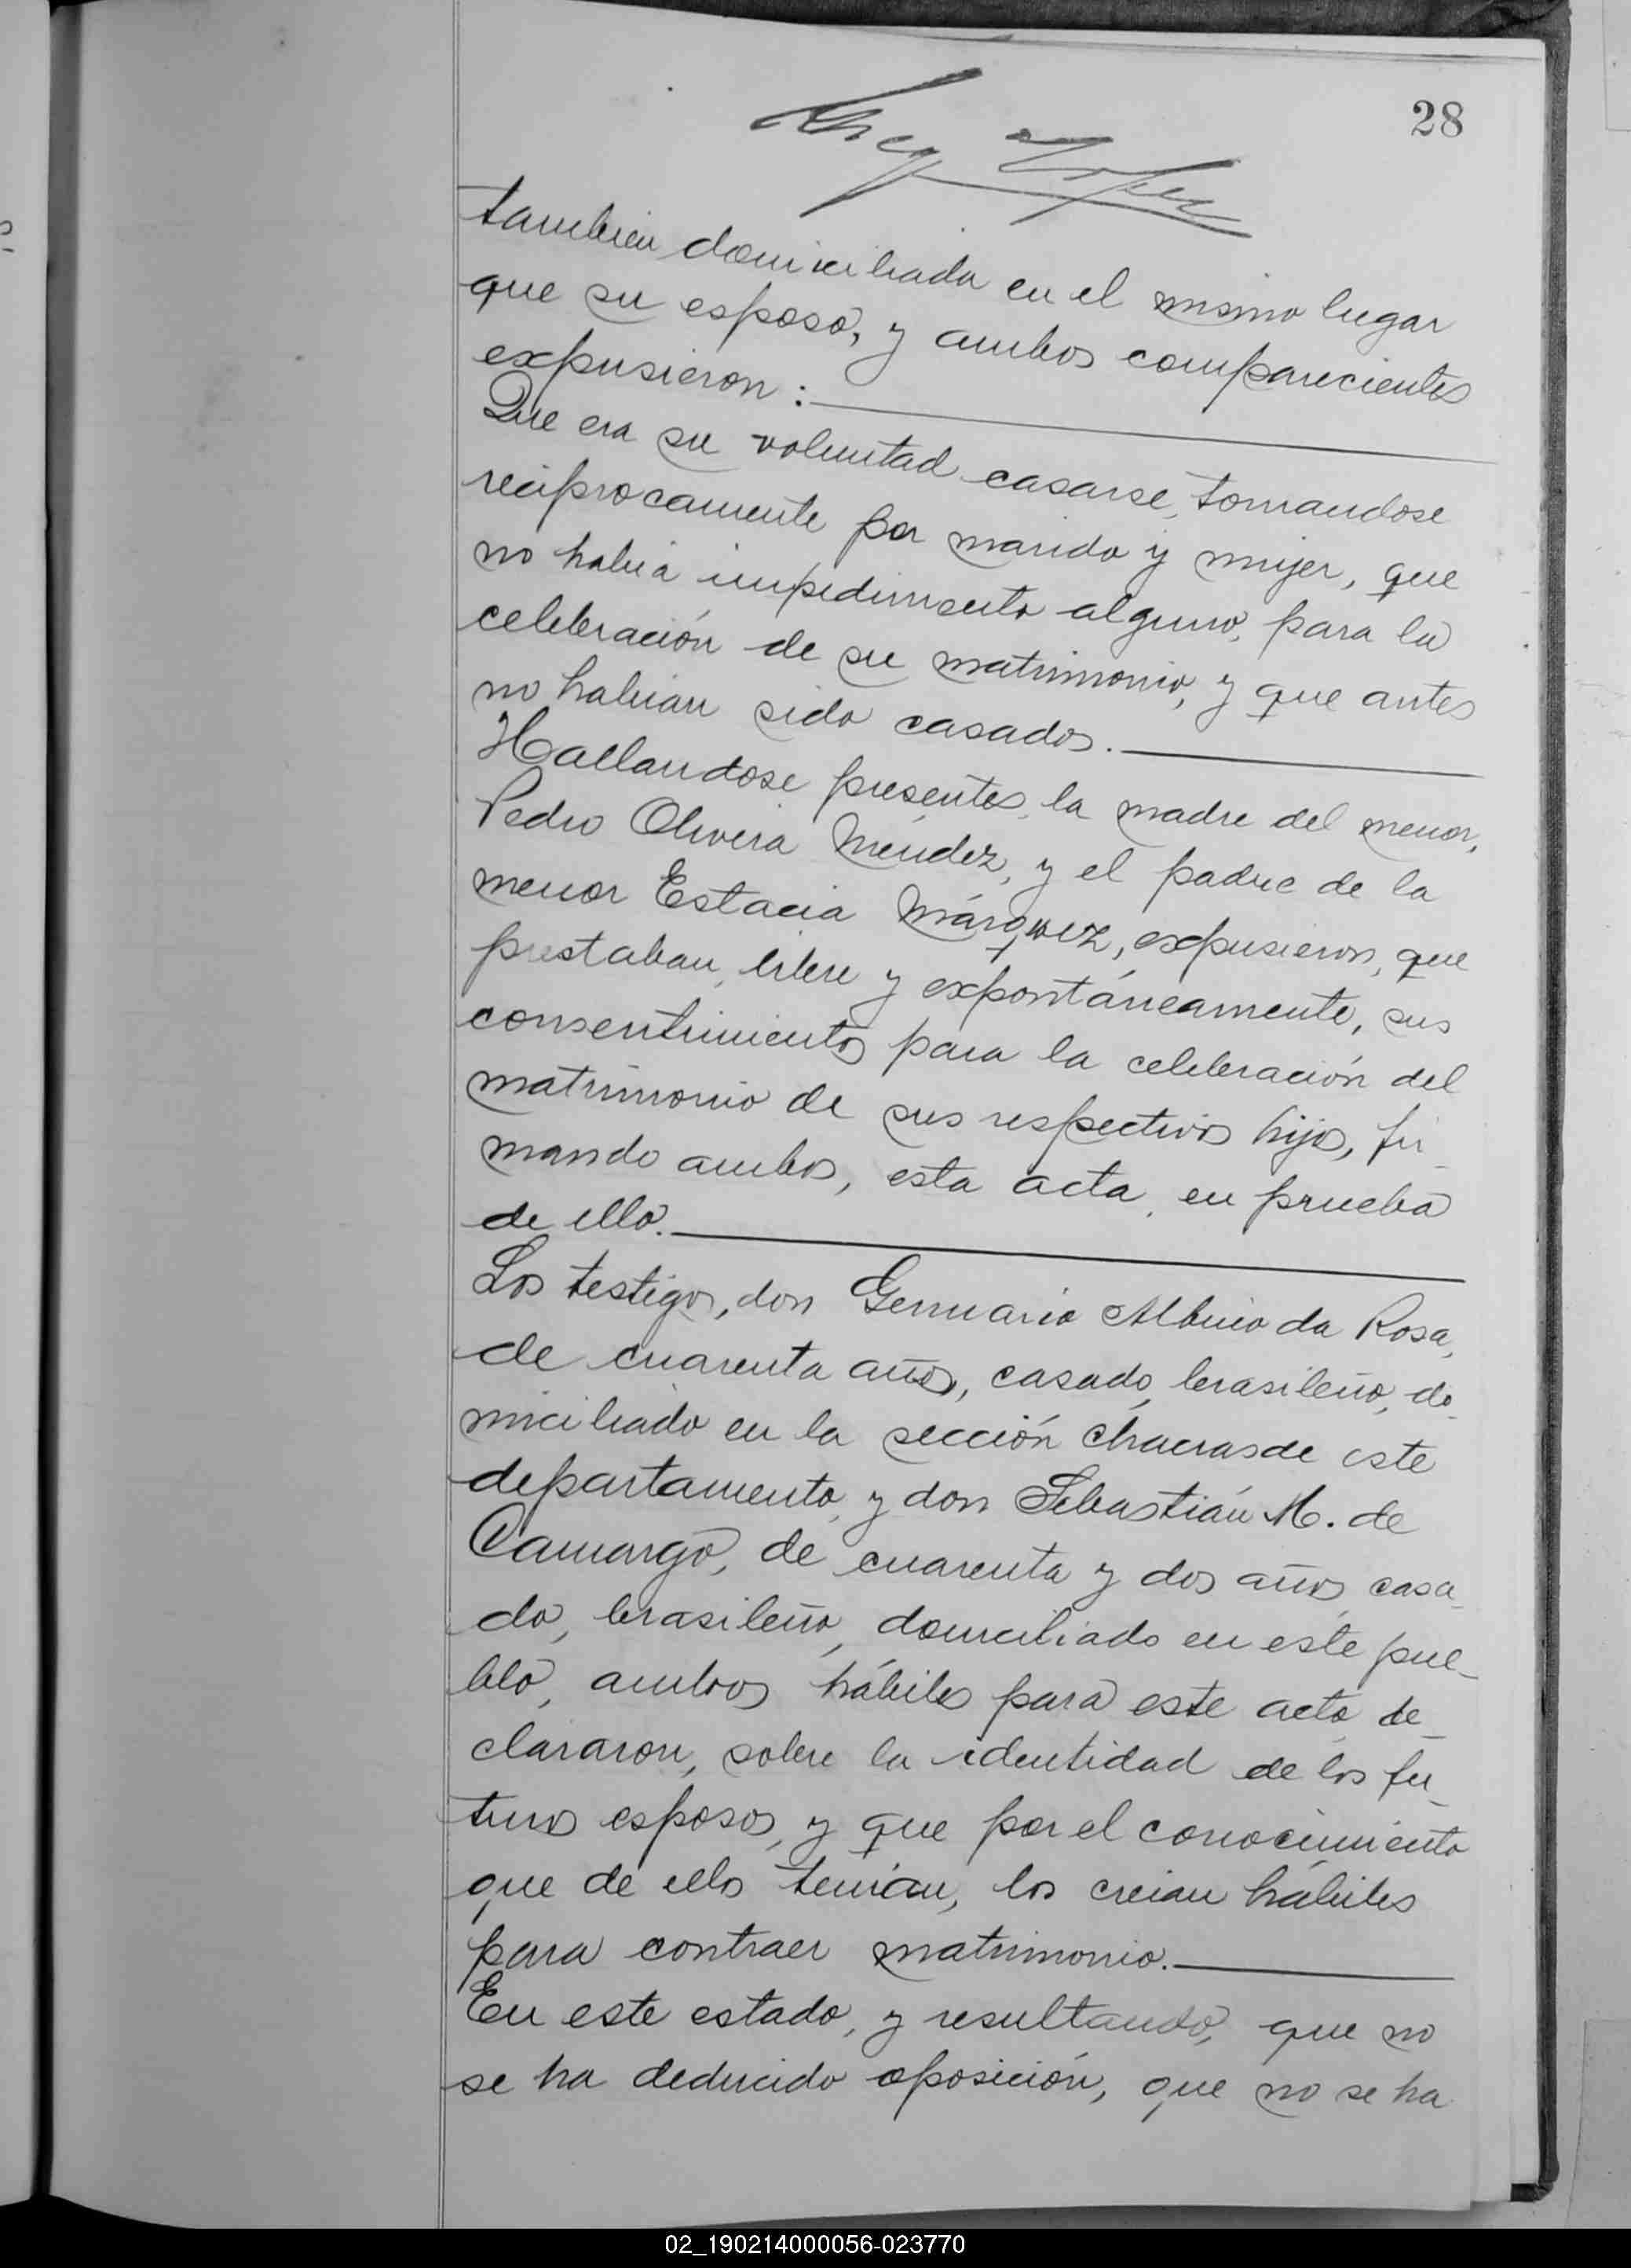 28
tambien domiciliada en el mismo lugar
que su esposo, y ambos comparecientes
expusieron:
Que era su voluntad casarse, tomandose
reciprocamente por marido y mujer, que
no habia impedimento alguno, para la
celebración de su matrimonio, y que antes
no habian sido casados.
Hallandose presentes, la madre del menor,
Pedro Olivera Méndez, y el padre de la
menor Estacia Márquez, expusieron, que
prestaban, libre y expontáneamente, sus
consentimientos para la celebración del
matrimonio de sus respectivos hijos, fir_
mando ambos, esta acta, en prueba
de ello.
Los testigos, don Genuario Albino da Rosa,
de cuarenta años, casado, brasileño, do_
miciliado en la sección Chacras de este
departamento, y don Sebastián M. de
Camargo, de cuarenta y dos años, casa_
do, brasileño, domiciliado en este pue_
blo, ambos hábiles para este acto, de_
clararon, sobre la identidad de los fu_
turos esposos, y que por el conocimiento
que de ellos tenian, los creian hábiles
para contraer matrimonio.
En este estado, y resultando, que no
se ha deducido oposición, que no se ha
02_190214000056-023770